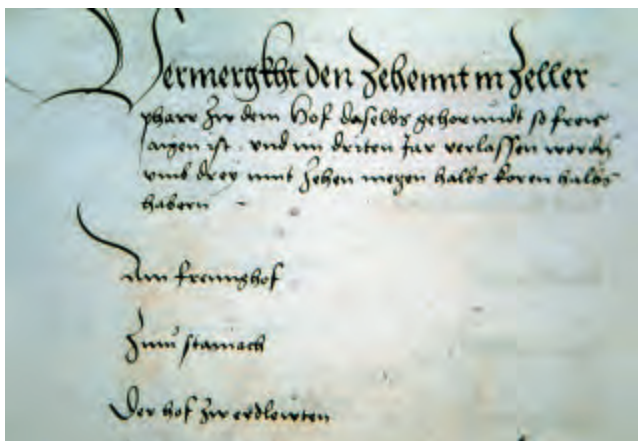 Vermergkht den Zehennt in Zeller
pharr Zw dem Hof daselbs gehorundt so freis
aigen ist . vnd im driten Jar verlassen werdn
vmb drey unnt Zehen metzen halbs koren halbs
habern
Am frennghof
Zum stainach
Der hof Zw erdlewten